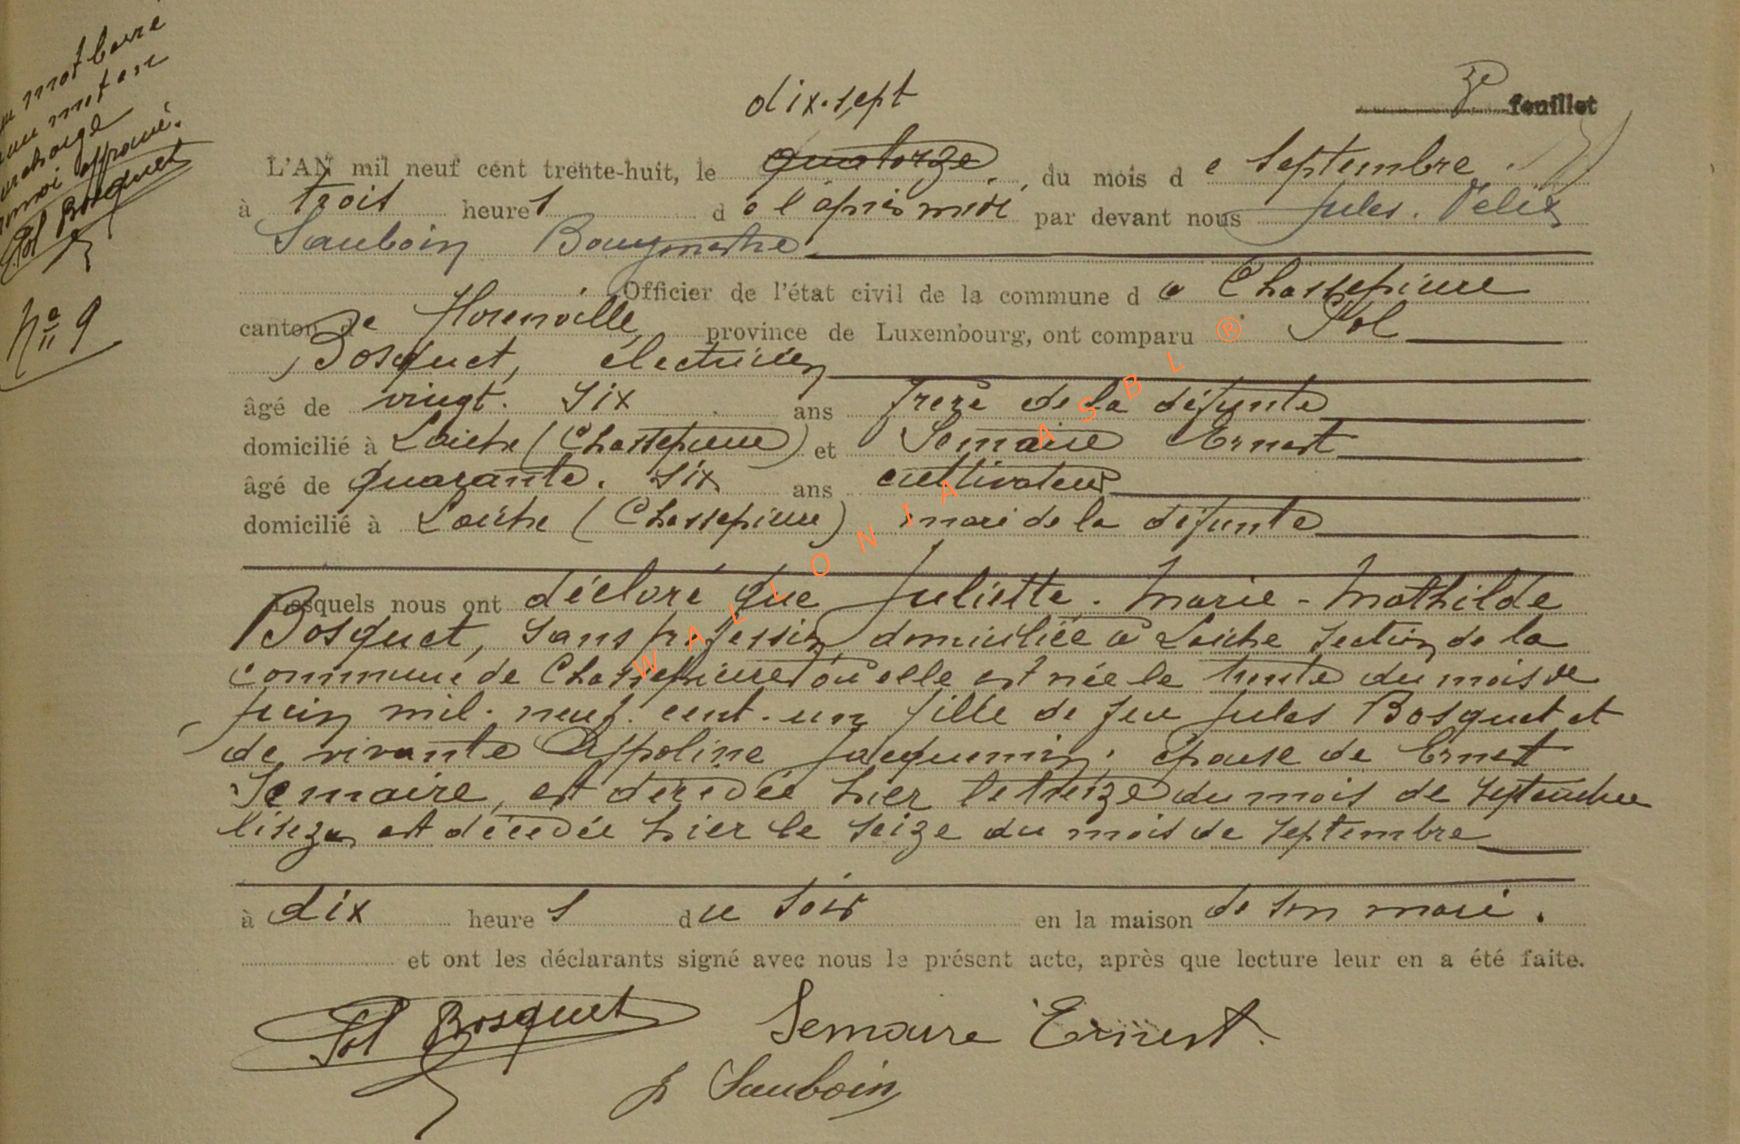 mot barré
mot en
surcharge
approuvé.
Pol Bosquet
N° 9
3e feuillet
dix-sept
L'AN mil neuf cent trente-huit, le quatorze, du mois de Septembre
à trois heures de l'après midi par devant nous Jules. Félix
Sauboin Bourgmestre
Officier de l'état civil de la commune de Chassepierre
canton de Florenville province de Luxembourg, ont comparu Pol
Bosquet, électricien
âgé de vingt. six ans frère de la défunte
domicilié à Laiche (Chassepierre) et Semaire Ernest
âgé de quarante. six ans cultivateur
domicilié à Laiche (Chassepierre) mari de la défunte
Lesquels nous ont déclaré que Juliette - Marie - Mathilde
Bosquet, sans profession domiciliée à Laiche section de la
commune de Chassepierre où elle est née le trente du mois de
Juin mil. neuf. cent. un fille de feu Jules Bosquet et
de vivante Appoline Jacquemin. épouse de Ernest
Semaire, est décédée hier le treize du mois de septembre
lisez est décédée hier le seize du mois de septembre
à dix heures du soir en la maison de son mari.
et ont les déclarants signé avec nous le présent acte, après que lecture leur en a été faite.
Pol Bosquet Semaire Ernest.
J Sauboin
WALLONIA ASBL ®